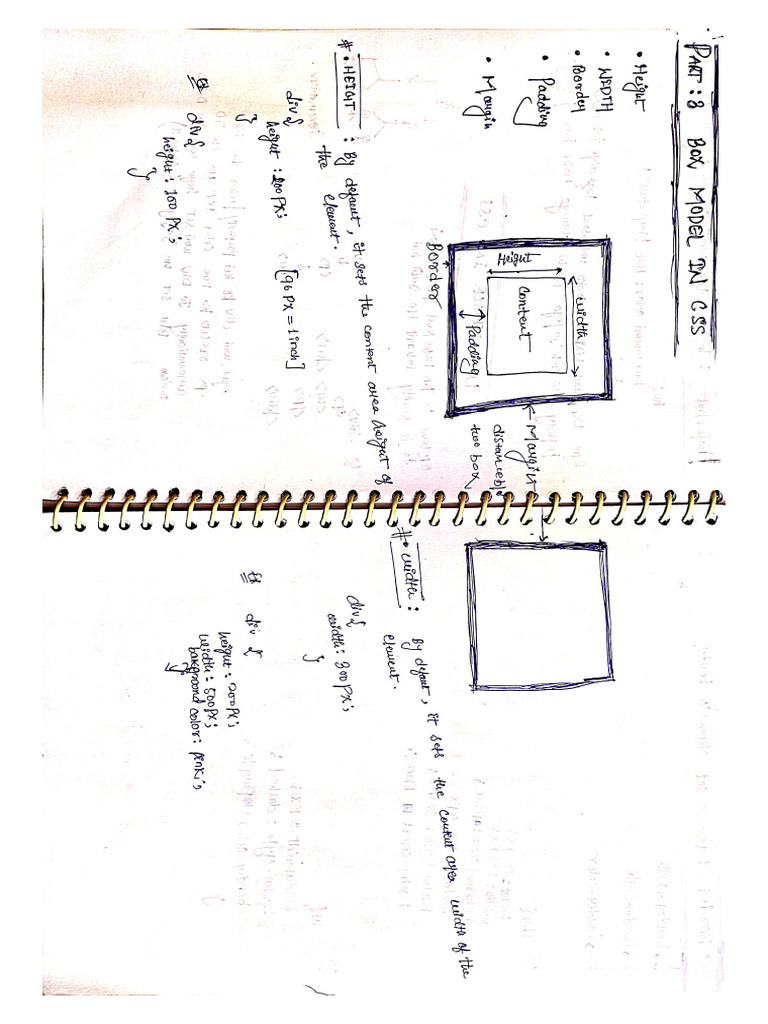 PART : 3 BOX MODEL IN CSS
• Height
• WIDTH
• Border
• Padding
• Margin
Height
width
Content
Padding
Border
← Margin
two box
# • HEIGT : By defaut, it sets the content area height of
the element.
div {
height : 200 px;
}
[96 PX = 1 inch]
div {
height : 100 PX;
}
# • width :
By defaut, it sets, the content area width of the
element.
div {
width : 300 PX;
}
div {
height : 200 PX;
width : 500 PX;
background color : pink;
}